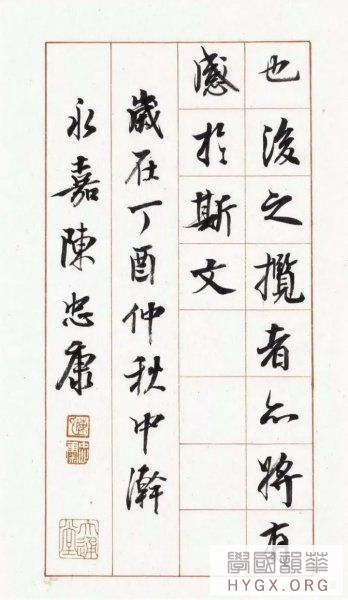 也後之攬者亦將有
感於斯文
歲在丁酉仲秋中澣
永嘉陳忠康
大通堂
華韻國學
HYGX.ORG